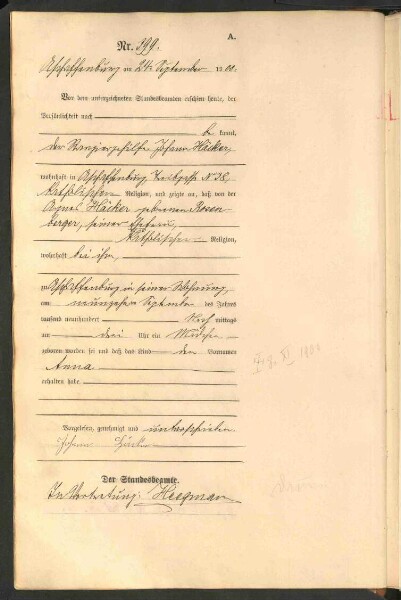 A.
Nr. 399.
Aschaffenburg am 24. September 1900.
Vor dem unterzeichneten Standesbeamten erschien heute, der
Persönlichkeit nach
be kannt,
der Johann Häcker,
wohnhaft in Aschaffenburg, N° 28,
katholischer Religion, und zeigte an, daß von der
Agnes Häcker geborenen Rosen-
berger, seiner Ehefrau,
katholischer Religion,
wohnhaft bei ihm,
zu Aschaffenburg in seiner Wohnung,
am neunzehn September des Jahres
tausend neunhundert Nach mittags
um drei Uhr ein Mädchen
geboren worden sei und daß das Kind den Vornamen
Anna
erhalten habe.
Vorgelesen, genehmigt und unterschrieben
Johann Häcker
Der Standesbeamte.
In Vertretung: Heegmann